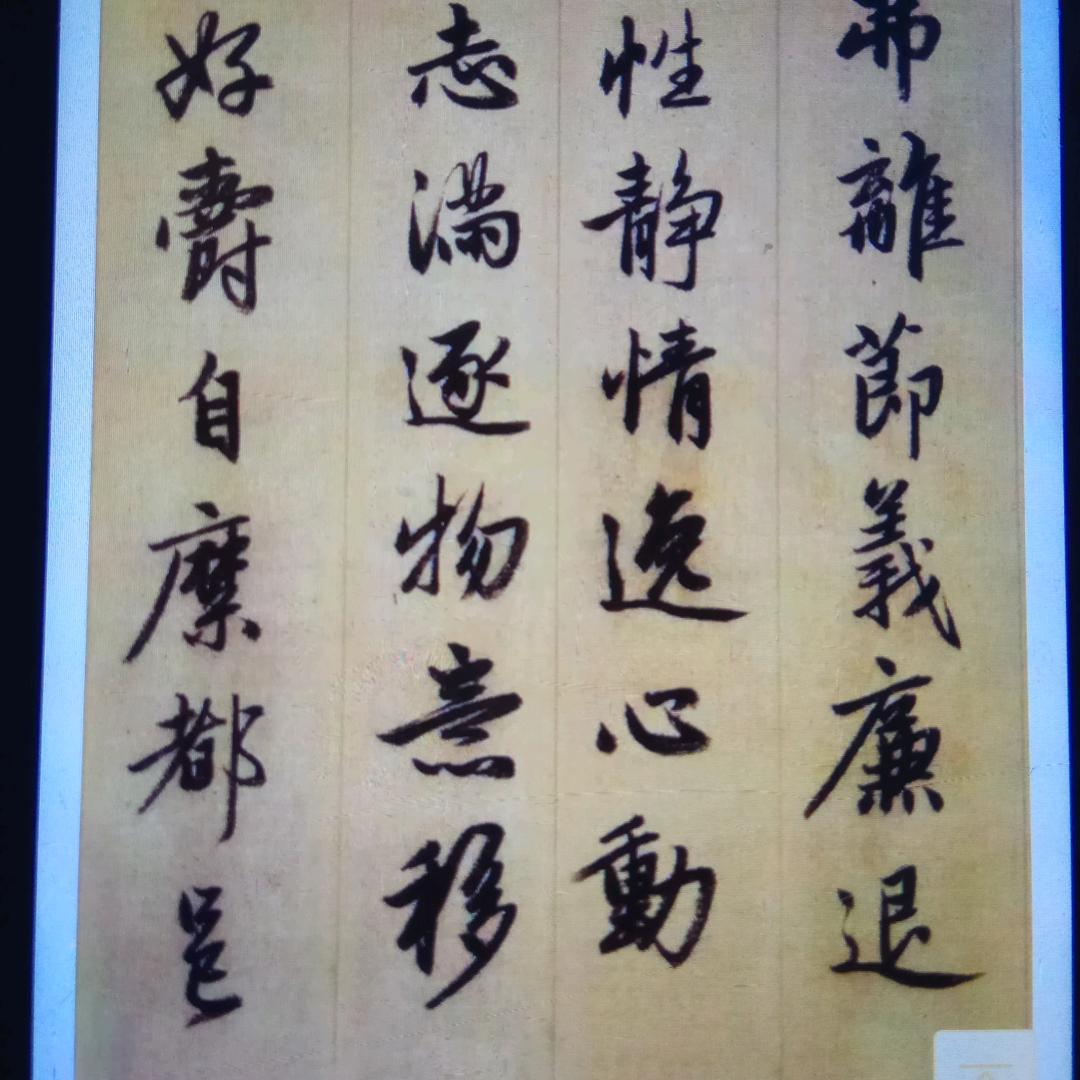 弗離節義廉退
性静情逸心動
志滿逐物意移
好爵自縻都邑